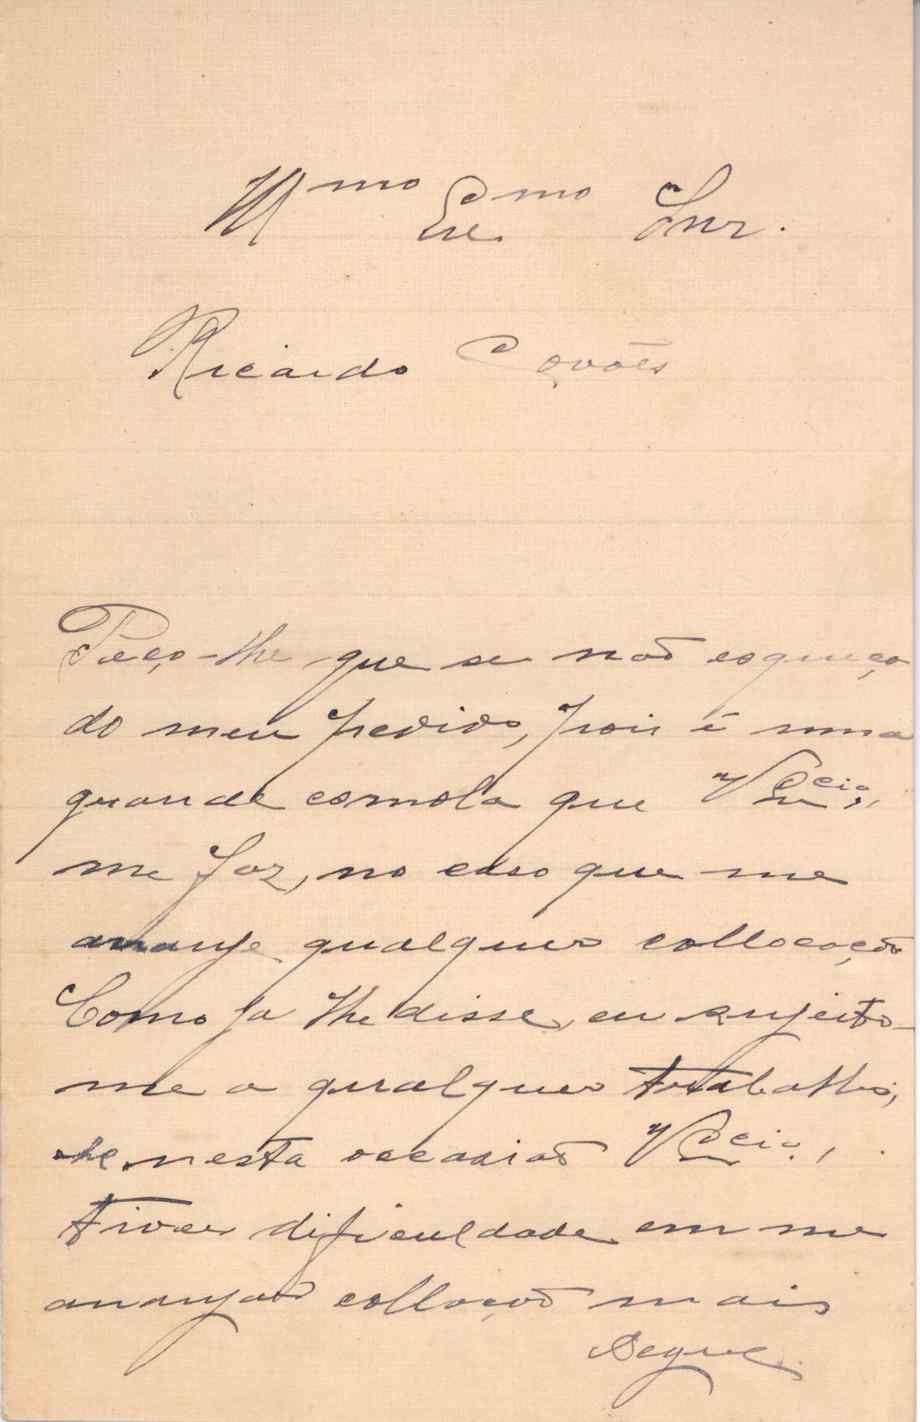 Illmo Exmo Snr.
Ricardo Covões
Peço-lhe que se não esqueça
do meu pedido, pois é uma
grande esmola que V Excia,
me faz, no caso que me
arranje qualquer collocação
Como ja lhe disse, eu sujeito-
me a qualquer trabalho,
se nesta occasião V Excia,
tiver dificuldade em me
arranjar collocação mais
Segue